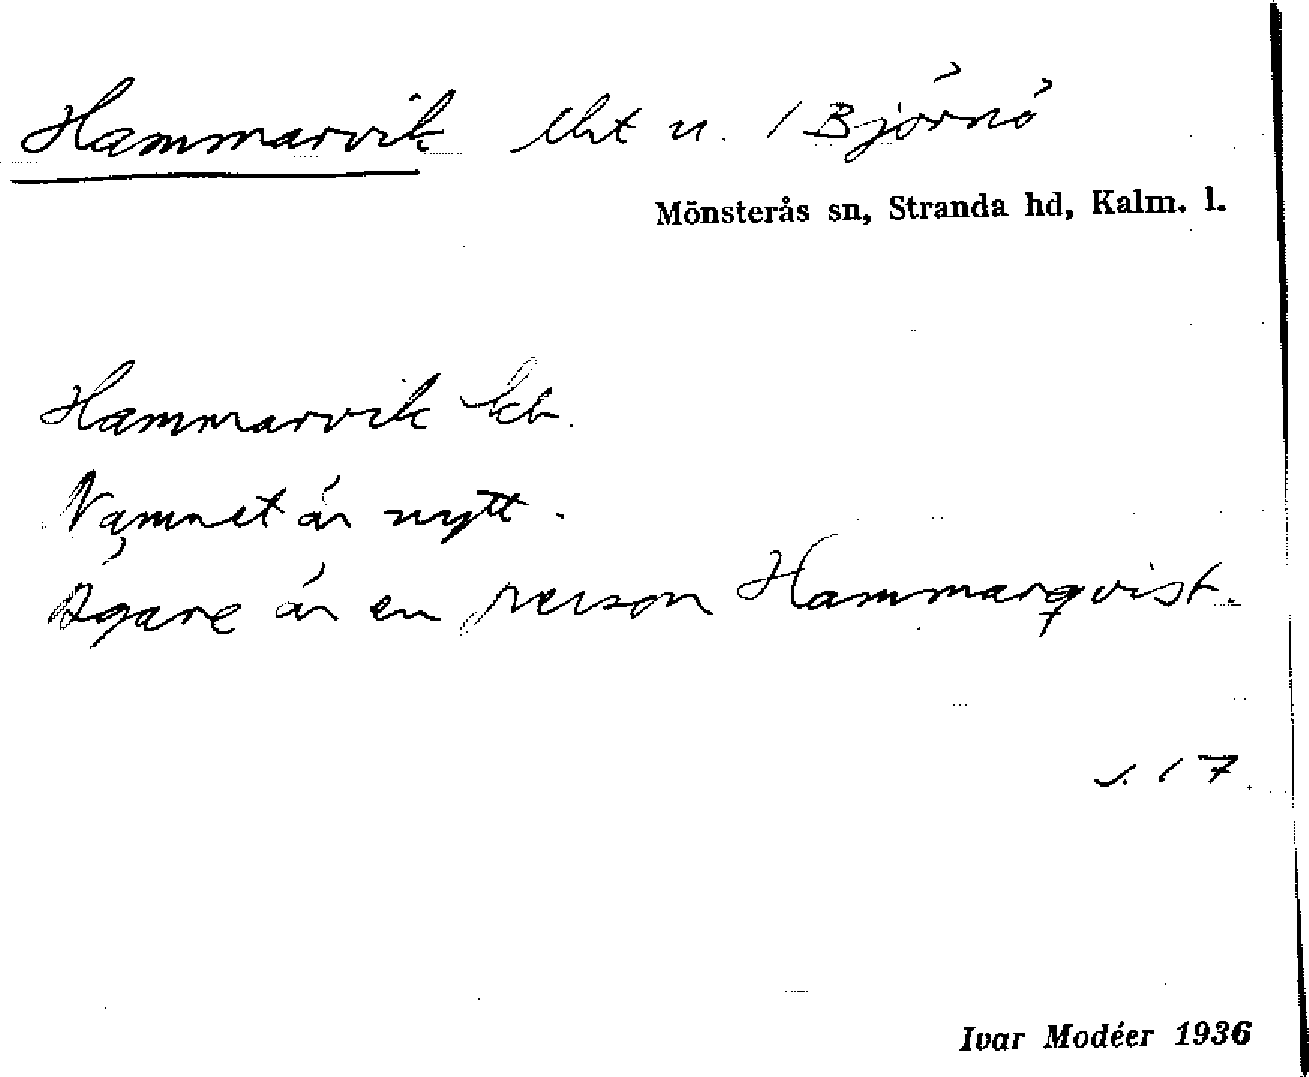 Hammarvik lht u. 1 Björnö
Mönsterås sn, Stranda hd, Kalm. l.
Hammarvik Ekb.
Namnet är nytt.
Ägare är en person Hammarqvist.
s. 17.
Ivar Modéer 1936